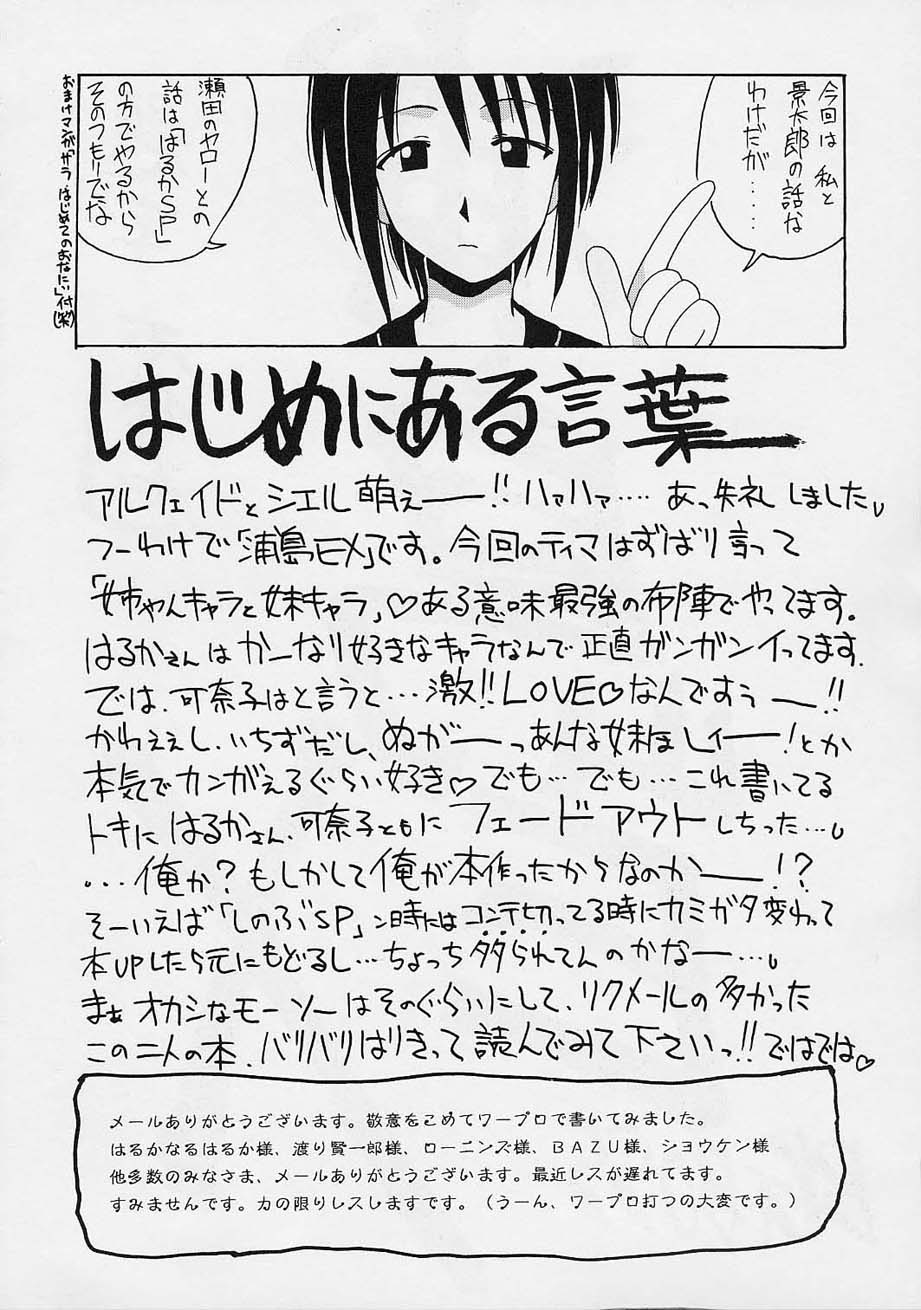 今回は 私と
景太郎の話な
わけだが‥‥
瀬田のヤローとの
話は「はるかSP」
の方でやるから
そのつもりでな
おまけマンガ「カラ はじめてのおなにぃ」付(笑)
はじめにある言葉
アルクェイドとシエル萌えー!!ハァハァ‥‥あっ失礼しました
つーわけで「浦島EX」です。今回のティマはずばり言って
「姉ちゃんキャラと妹キャラ」♡ある意味最強の布陣でやってます。
はるかさんはかーなり好きなキャラなんで正直ガンガンイってます.
では、可奈子はと言うと…激!!LOVE♡なんですぅー!!
かわええし、いちずだし、ぬがーっあんな妹ほしィー!とか
本気でカンがえるぐらい好き♡でも…でも…これ書いてる
トキにはるかさん、可奈子ともにフェードアウトしちった…
…俺か?もしかして俺が本作ったからなのかー!?
そーいえば「しのぶSP」ン時にはコンテ切ってる時にカミガタ変わって
本UPしたら元にもどるし…ちょっち祟られてんのかなー…
まぁオカシなモーソーはそのぐらいにして、リクメールの多かった
この二人の本、バリバリはりきって読んでみて下さいっ!!ではでは♡
メールありがとうございます。敬意をこめてワープロで書いてみました。
はるかなるはるか様、渡り賢一郎様、ローニンズ様、BAZU様、ショウケン様
他多数のみなさま、メールありがとうございます。最近レスが遅れてます。
すみませんです。力の限りレスしますです。(うーん、ワープロ打つの大変です。)